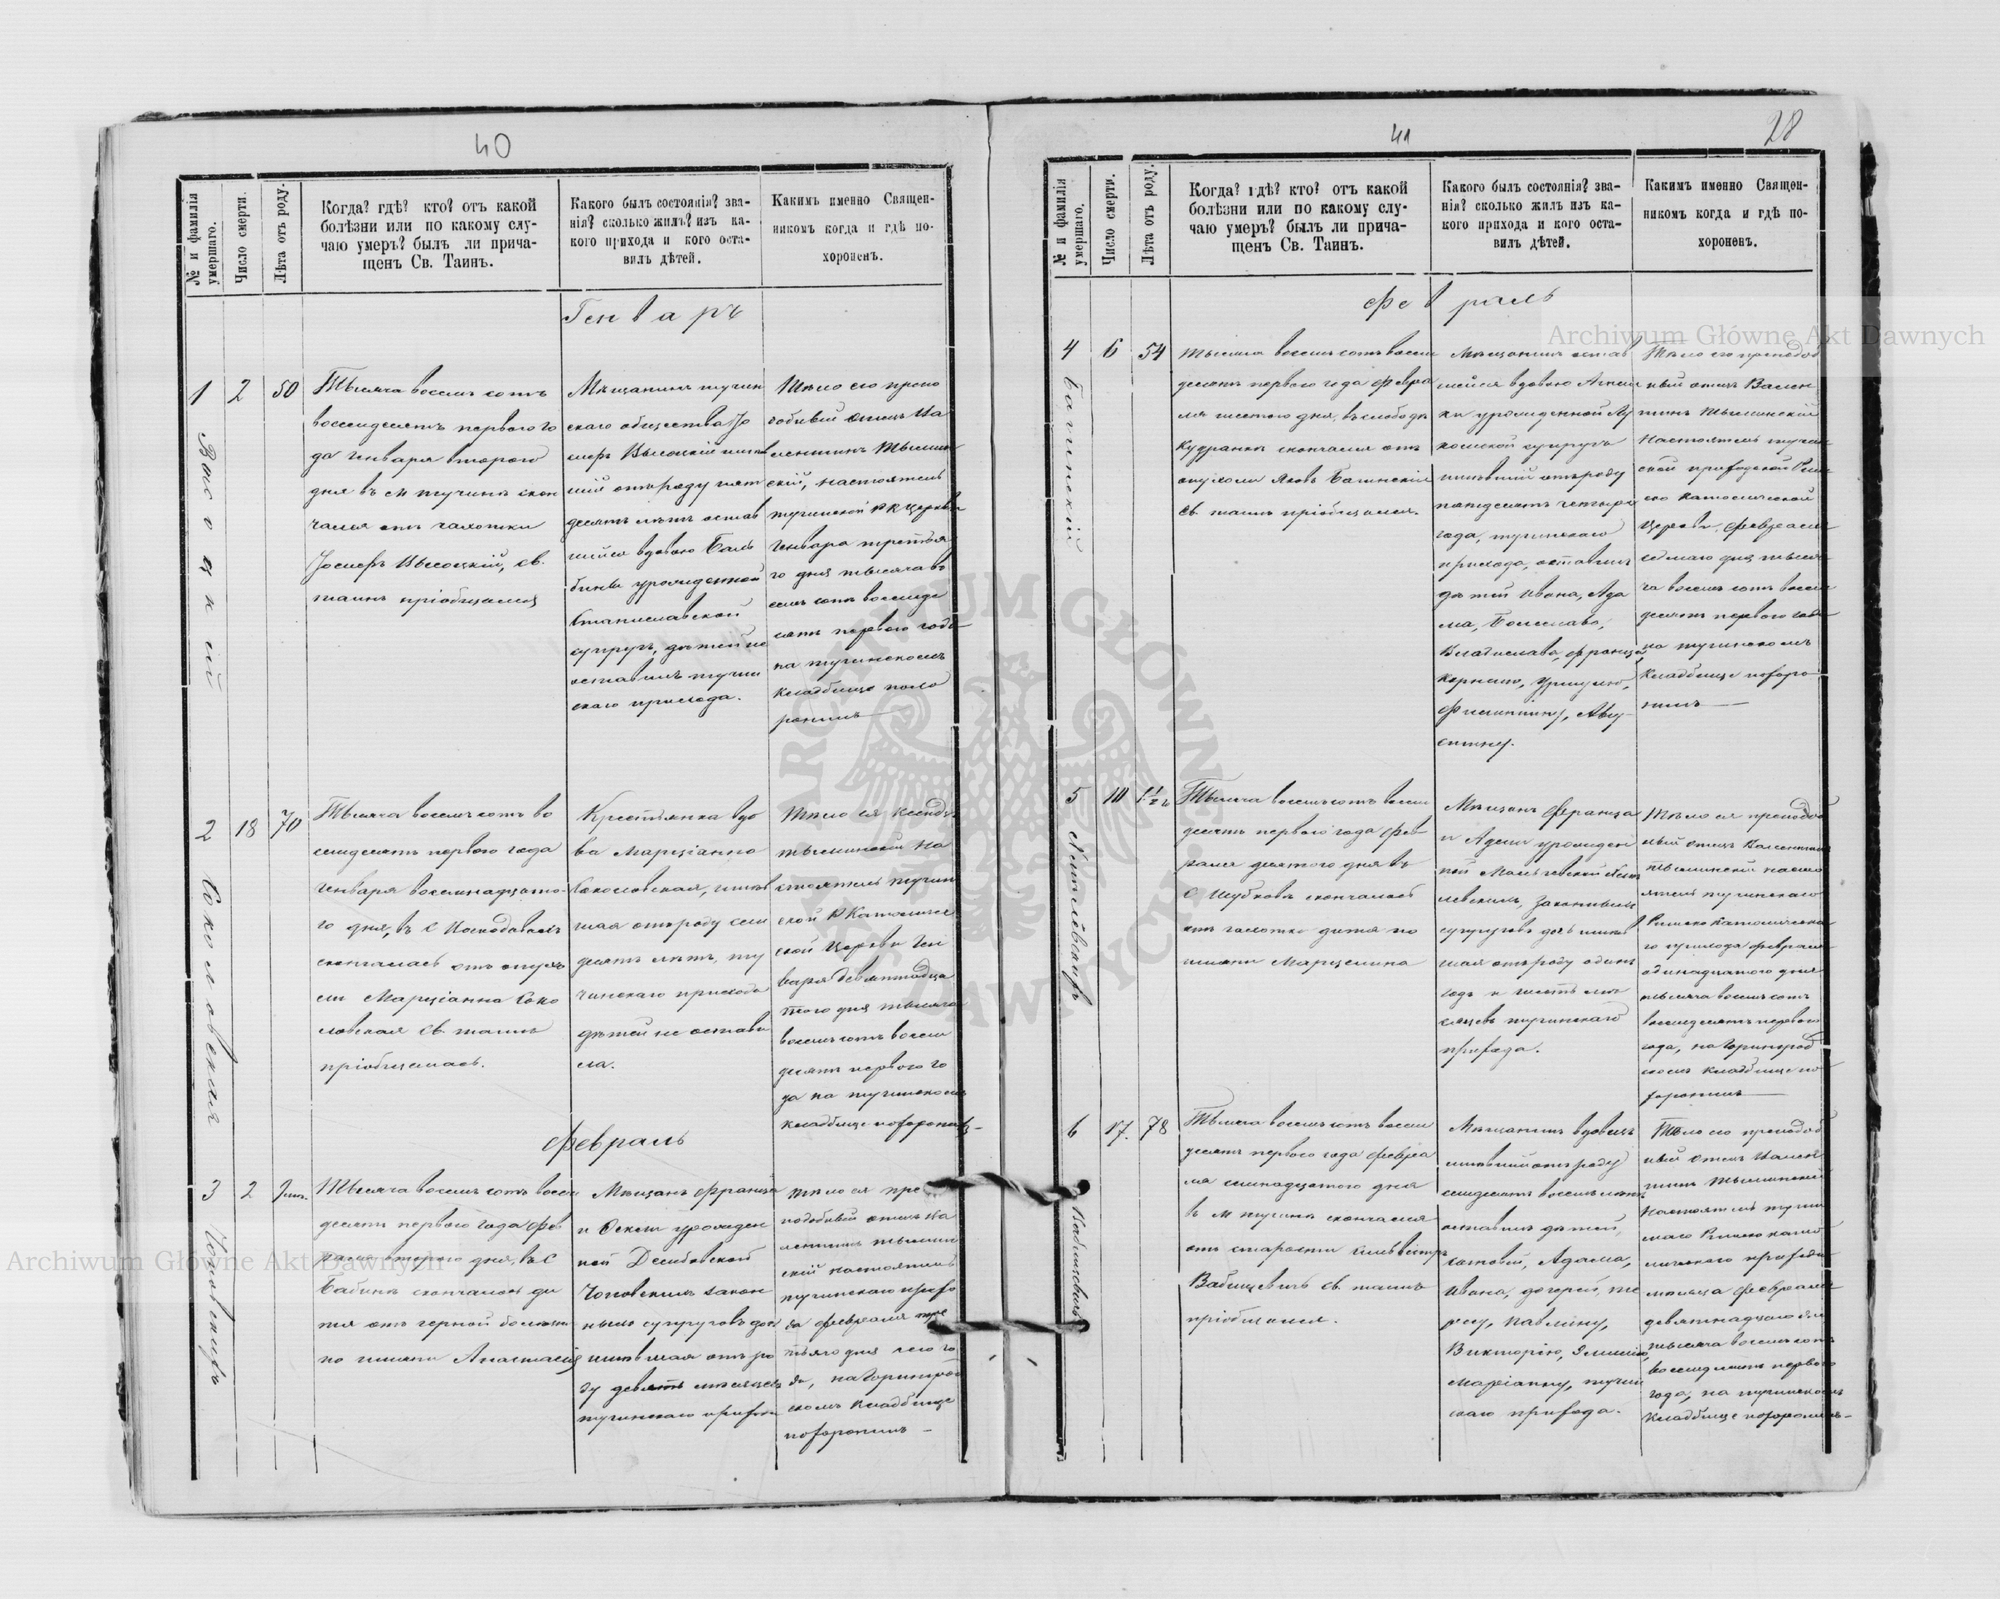 40
№ и фамилія умершаго.
Число смерти.
Лѣта отъ роду.
Когда? гдѣ? кто? отъ какой
болѣзни или по какому слу-
чаю умеръ? былъ ли прича-
щенъ Св. Таинъ.
Какого былъ состоянія? зва-
нія? сколько жилъ? изъ ка-
кого прихода и кого оста-
вилъ дѣтей.
Какимъ именно Священ-
никомъ когда и гдѣ по-
хороненъ.
Генваръ
1
2
50
Тысяча восемь сотъ
восемдесятъ перваго го
да Генваря втораго
дня въ м Тучинѣ скон
чался отъ чахотки
Іосифъ Высоцкій, св.
таинъ пріобщался
Мѣщанинъ тучин
скаго общества Іо
сифъ Высоцкій жив
шій отъ роду пят
десятъ лѣтъ остав
шійся вдовою Баль
бины урожденной
Станиславской
супругъ, дѣтей не
оставилъ тучин
скаго прихода.
Тѣло его препо
добный отецъ Ва
лентинъ Тыминс
скій, настоятель
тучинской РК церкви
Генваря третья
го дня тысяча во
семь сотъ восемде
сятъ перваго года
на тучинскомъ
кладбище похо
ронилъ
2
18
70
Соколовская
Тысяча восемь сотъ во
семдесятъ перваго года
Генваря восемнадцато
го дня, въ с
скончалась отъ опухо
ли Марціанна Соко
ловская св. таинъ
пріобщалась.
Крестьянка вдо
ва Марціанна
Соколовская, жив
шая отъ роду сем
десятъ лѣтъ, ту
чинскаго прихода
дѣтей не остави
ла.
Тѣло ея ксендзъ
Тыминскій на
стоятель тучин
ской Р Католиче
ской Церкви Ген
варя девятнадца
таго дня тысяча
восемь сотъ восем
десятъ перваго го
да на тучинскомъ
кладбище похоронилъ
Февраль
3
2
Тысяча восемь сотъ восем
десятъ перваго года Фев
раля втораго дня, въ с
Бабинѣ скончалось ди
тя отъ черной болѣзни
по имени Анастасія
Мѣщанъ Франца
и Феклы урожден
ной Дембовской
закон
ныхъ супруговъ дочь
жившая отъ ро
ду девять мѣсяцевъ
тучинскаго прихода
Тѣло ея пре
подобный отецъ Ва
лентинъ Тымин
скій настоятель
тучинскаго прихо
да февраля тре
тьяго дня сего го
да, на Горинград
скомъ кладбище
похоронилъ
41
28
№ и фамилія умершаго.
Число смерти.
Лѣта отъ роду.
Когда? гдѣ? кто? отъ какой
болѣзни или по какому слу-
чаю умеръ? былъ ли прича-
щенъ Св. Таинъ.
Какого былъ состоянія? зва-
нія? сколько жилъ изъ ка-
кого прихода и кого оста-
вилъ дѣтей.
Какимъ именно Священ-
никомъ когда и гдѣ по-
хороненъ.
Февраль
4
6
54
Багинскій
Тысяча восемь сотъ восем
десятъ перваго года Февра
ля шестаго дня, въ слободѣ
Кудранкѣ скончался отъ
опухоли Яковъ Багинскій
св. таинъ пріобщался.
Мѣщанинъ остав
шейся вдовою
урожденной
супругъ
жившій отъ роду
пятдесятъ четыре
года, тучинскаго
прихода, оставилъ
дѣтей Ивана, Ада
ма, Болеслава,
Владислава, Франца,
Урщулю,
Фелиппину, Авгу-
стину.
Тѣло его преподоб
ный отецъ Вален
тинъ Тыминскій
настоятель тучин
ской приходской Рим
ско Католической
церкви, февраля
седмаго дня тыся
ча восемь сотъ восем
десятъ перваго года
на тучинскомъ
кладбище похоро
нилъ
5
10
1 1/2
Тысяча восемь сотъ восем
десятъ перваго года Фев
раля десятаго дня въ
с Шубковѣ скончалось
отъ чахотки дитя по
имени Марцелина
Мѣщанъ Франца
и Адели урожден
ной
законныхъ
супруговъ дочь жив
шая отъ роду одинъ
годъ и шесть мѣ
сяцевъ тучинскаго
прихода.
Тѣло ея преподоб
ный отецъ Валентинъ
Тыминскій насто
ятель тучинскаго
Римско Католическа
го прихода февраля
одинадцатого дня
тысяча восемь сотъ
восемдесятъ перваго
года, на Горинград
скомъ кладбище по
хоронилъ
6
17.
78
Вабищевичъ
Тысяча восемь сотъ восем
десятъ перваго года Февра
ля семнадцатого дня
въ м Тучинѣ скончался
отъ старости Сильвестръ
Вабищевичъ св. таинъ
пріобщался.
Мѣщанинъ вдовецъ
жившій отъ роду
семдесятъ восемь лѣтъ
оставилъ дѣтей,
сыновей, Адама,
Ивана, дочерей, Те
ресу, Павлину,
Викторію, Эмилію,
Маріанну, тучин
скаго прихода.
Тѣло его преподоб
ный отецъ Вален
тинъ Тыминскій
настоятель тучин
скаго Римско Като
лическаго прихода
мѣсяца февраля
девятнадцатаго дня
тысяча восемь сотъ
восемдесятъ перваго
года, на тучинскомъ
кладбище похоронилъ
Archiwum Główne Akt Dawnych
Archiwum Główne Akt Dawnych
ARCHIWUM GŁÓWNE AKT DAWNYCH